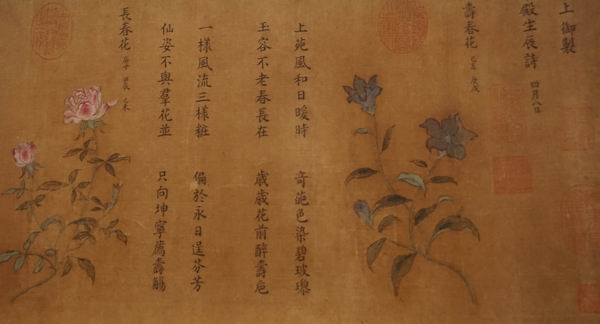 上 御製
殿生辰詩 四月八日
壽春花
上苑風和日暖時 奇葩色染碧玻瓈
玉容不老春長在 歲歲花前醉壽卮
一樣風流三樣粧 偏於永日逞芬芳
仙姿不與羣花並 只向坤寧薦壽觴
長春花